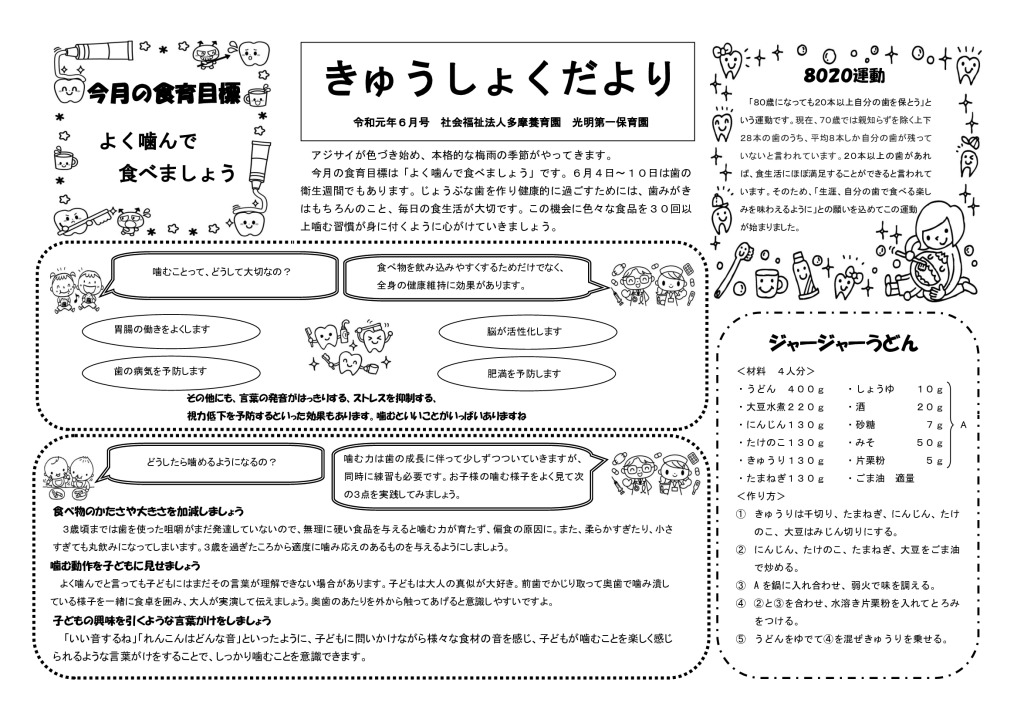 今月の食育目標
よく噛んで
食べましょう
きゅうしょくだより
令和元年６月号　社会福祉法人多摩養育園　光明第一保育園
アジサイが色づき始め、本格的な梅雨の季節がやってきます。
今月の食育目標は「よく噛んで食べましょう」です。６月４日～１０日は歯の
衛生週間でもあります。じょうぶな歯を作り健康的に過ごすためには、歯みがき
はもちろんのこと、毎日の食生活が大切です。この機会に色々な食品を３０回以
上噛む習慣が身に付くように心がけていきましょう。
8020運動
「80歳になっても20本以上自分の歯を保とう」と
いう運動です。現在、70歳では親知らずを除く上下
28本の歯のうち、平均8本しか自分の歯が残って
いないと言われています。20本以上の歯があれ
ば、食生活にほぼ満足することができると言われて
います。そのため、「生涯、自分の歯で食べる楽し
みを味わえるように」との願いを込めてこの運動
が始まりました。
噛むことって、どうして大切なの？
食べ物を飲み込みやすくするためだけでなく、
全身の健康維持に効果があります。
胃腸の働きをよくします
脳が活性化します
歯の病気を予防します
肥満を予防します
その他にも、言葉の発音がはっきりする、ストレスを抑制する、
視力低下を予防するといった効果もあります。噛むといいことがいっぱいありますね
どうしたら噛めるようになるの？
噛む力は歯の成長に伴って少しずつついていきますが、
同時に練習も必要です。お子様の噛む様子をよく見て次
の３点を実践してみましょう。
食べ物のかたさや大きさを加減しましょう
３歳頃までは歯を使った咀嚼がまだ発達していないので、無理に硬い食品を与えると噛む力が育たず、偏食の原因に。また、柔らかすぎたり、小さ
すぎても丸飲みになってしまいます。３歳を過ぎたころから適度に噛み応えのあるものを与えるようにしましょう。
噛む動作を子どもに見せましょう
よく噛んでと言っても子どもにはまだその言葉が理解できない場合があります。子どもは大人の真似が大好き。前歯でかじり取って奥歯で噛み潰し
ている様子を一緒に食卓を囲み、大人が実演して伝えましょう。奥歯のあたりを外から触ってあげると意識しやすいですよ。
子どもの興味を引くような言葉がけをしましょう
「いい音するね」「れんこんはどんな音」といったように、子どもに問いかけながら様々な食材の音を感じ、子どもが噛むことを楽しく感じ
られるような言葉がけをすることで、しっかり噛むことを意識できます。
ジャージャーうどん
＜材料　４人分＞
・うどん　４００ｇ　・しょうゆ　１０ｇ
・大豆水煮２２０ｇ　・酒　２０ｇ
・にんじん１３０ｇ　・砂糖　７ｇ　Ａ
・たけのこ１３０ｇ　・みそ　５０ｇ
・きゅうり１３０ｇ　・片栗粉　５ｇ
・たまねぎ１３０ｇ　・ごま油　適量
＜作り方＞
①　きゅうりは千切り、たまねぎ、にんじん、たけ
のこ、大豆はみじん切りにする。
②　にんじん、たけのこ、たまねぎ、大豆をごま油
で炒める。
③　Ａを鍋に入れ合わせ、弱火で味を調える。
④　②と③を合わせ、水溶き片栗粉を入れてとろみ
をつける。
⑤　うどんをゆでて④を混ぜきゅうりを乗せる。